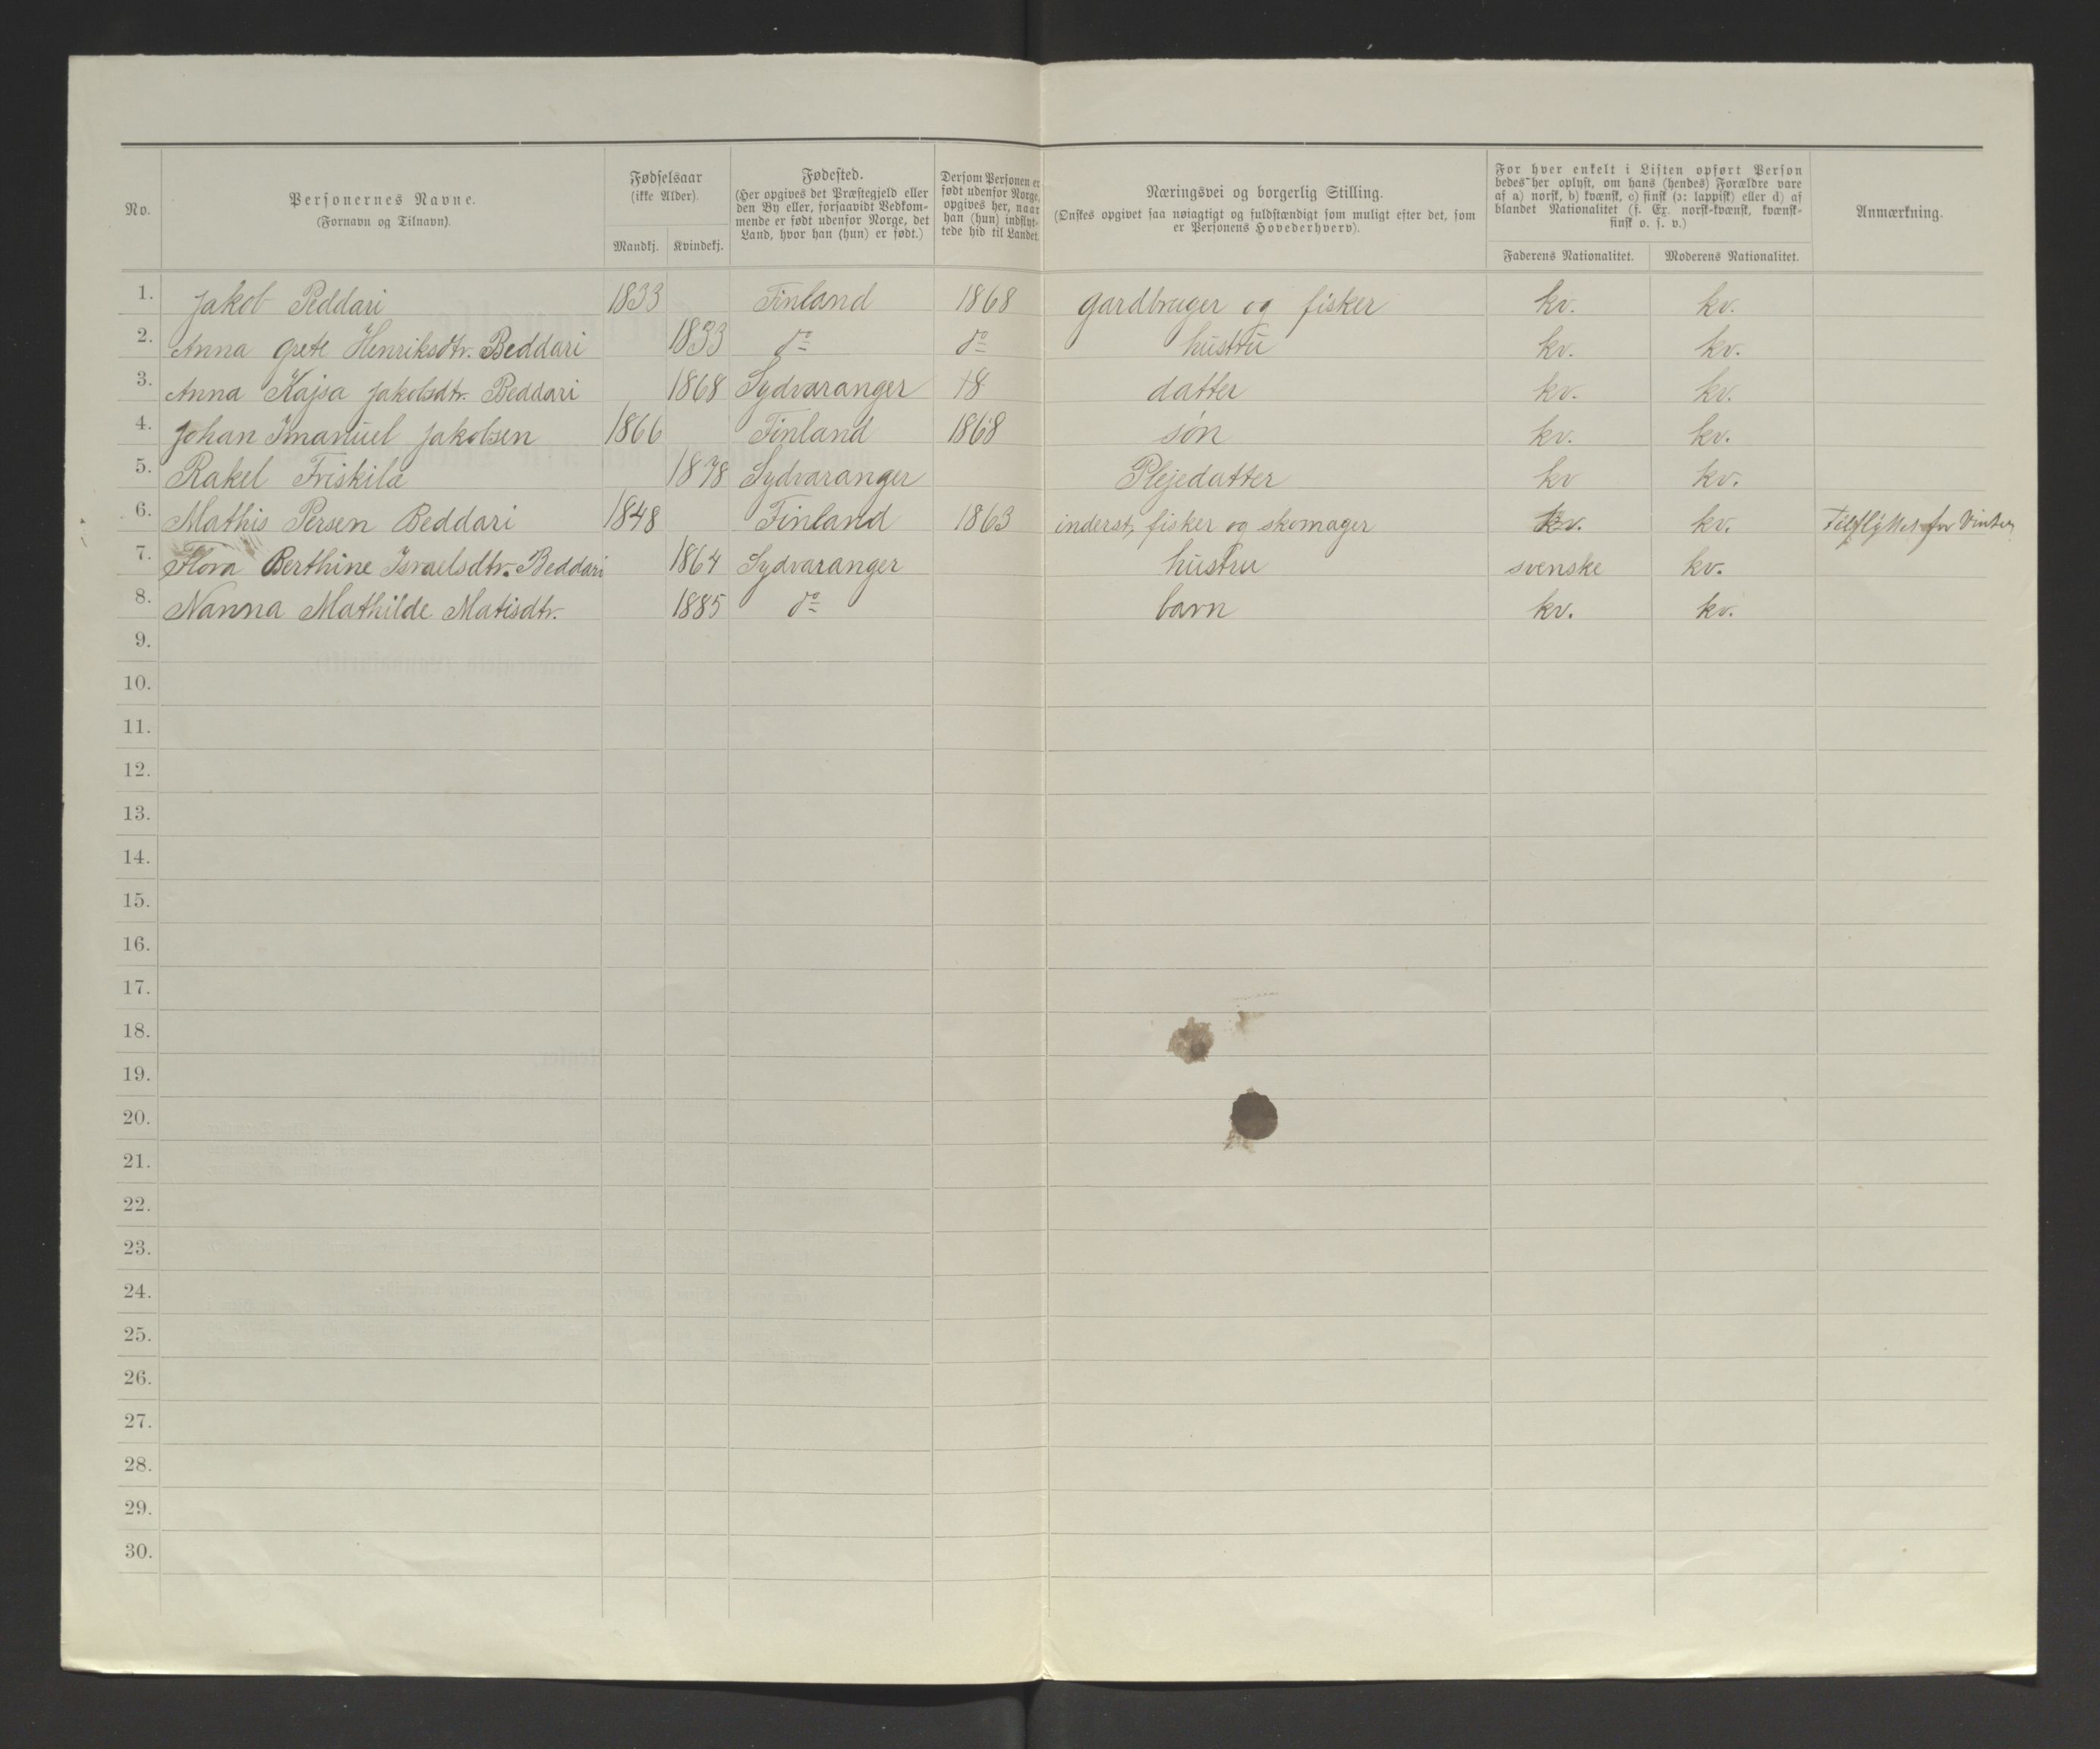 No.
Personernes Navne.
(Fornavn og Tilnavn).
Fødselsaar
(ikke Alder).
Mandkj. Kvindekj.
Fødested.
(Her opgives det Præstegjeld eller
den By eller, forsaavidt Vedkom-
mende er født udenfor Norge, det
Land, hvor han (hun) er født.)
Dersom Personen er
født udenfor Norge,
opgives her, naar
han (hun) indflyt-
tede hid til Landet.
Næringsvei og borgerlig Stilling.
(Ønskes opgivet saa nøiagtigt og fuldstændigt som muligt efter det, som
er Personens Hovederhverv).
For hver enkelt i Listen opført Person
bedes her oplyst, om hans (hendes) Forældre vare
af a) norsk, b) kvænsk, c) finsk (ɔ: lappisk) eller d) af
blandet Nationalitet (f. Ex. norsk-kvænsk, kvænsk-
finsk o. s. v.)
Faderens Nationalitet. Moderens Nationalitet.
Anmærkning.
1. Jakob Peddari 1833 Finland 1868 gardbruger og fisker kv. kv.
2. Anna Grete Henriksdtr. Beddari 1833 do do hustru kv. kv.
3. Anna Kajsa Jakobsdtr. Beddari 1868 Sydvaranger 18 datter kv. kv.
4. Johan Imanuel Jakobsen 1866 Finland 1868 søn kv. kv.
5. Rakel Friskila 1878 Sydvaranger Plejedatter kv kv.
6. Mathis Persen Beddari 1848 Finland 1863 inderst, fisker og skomager kv. kv. Tilflyttet for Vinter
7. Flora Berthine Israelsdtr. Beddari 1864 Sydvaranger hustru svenske kv.
8. Nanna Mathilde Matisdtr. 1885 do barn kv. kv.
9.
10.
11.
12.
13.
14.
15.
16.
17.
18.
19.
20.
21.
22.
23.
24.
25.
26.
27.
28.
29.
30.